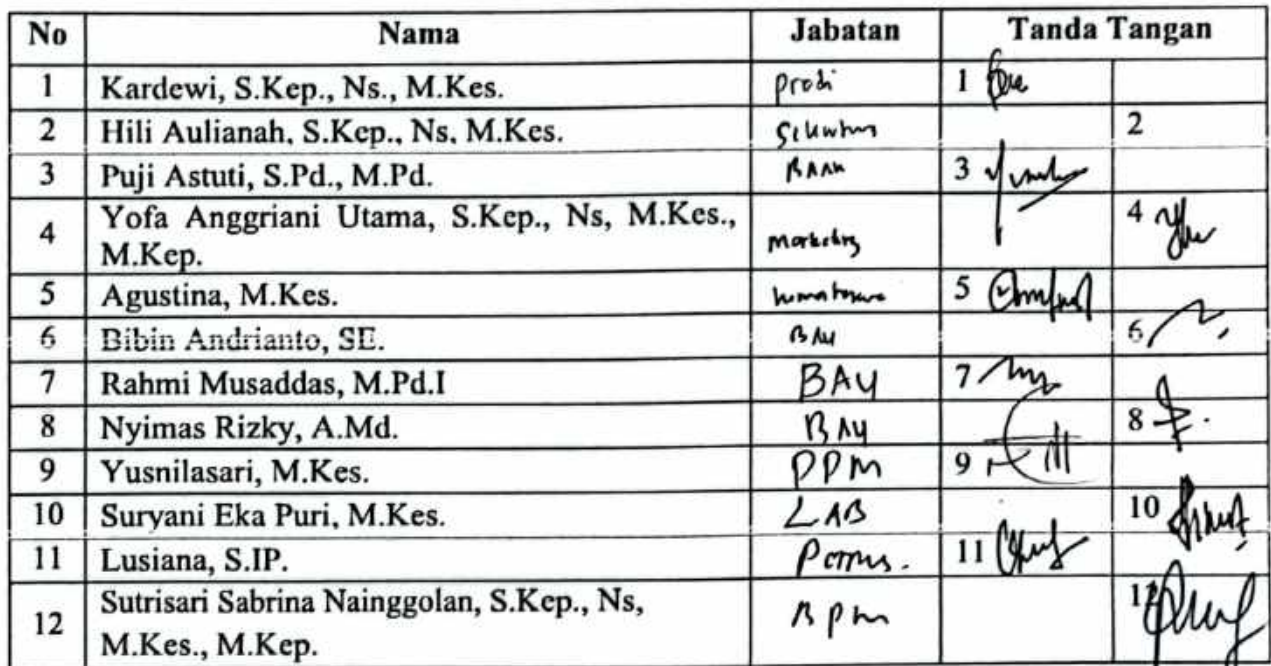 No Nama Jabatan Tanda Tangan
1 Kardewi, S.Kep., Ns., M.Kes. prodi 1
2 Hili Aulianah, S.Kep., Ns, M.Kes. 2
3 Puji Astuti, S.Pd., M.Pd. BAAK 3
4 Yofa Anggriani Utama, S.Kep., Ns, M.Kes., marketing 4
M.Kep.
5 Agustina, M.Kes. 5
6 Bibin Andrianto, SE. BAU 6
7 Rahmi Musaddas, M.Pd.I BAU 7
8 Nyimas Rizky, A.Md. BAU 8
9 Yusnilasari, M.Kes. PPM 9
10 Suryani Eka Puri, M.Kes. LAB 10
11 Lusiana, S.IP. 11
12 Sutrisari Sabrina Nainggolan, S.Kep., Ns, BPM 12
M.Kes., M.Kep.